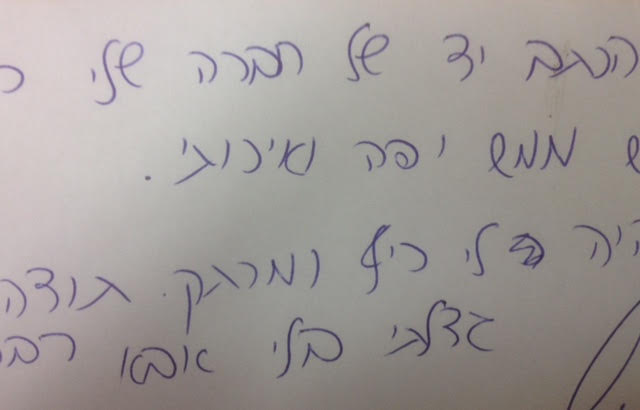 הכתב יד של חברה שלי
ממש יפה ואיכותי.
היה לי כיף ומרתק. תודה
גדלתי בלי אבא